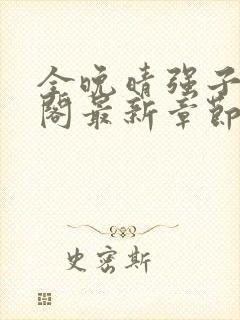 全晚晴强子
阁最新章節
史密斯